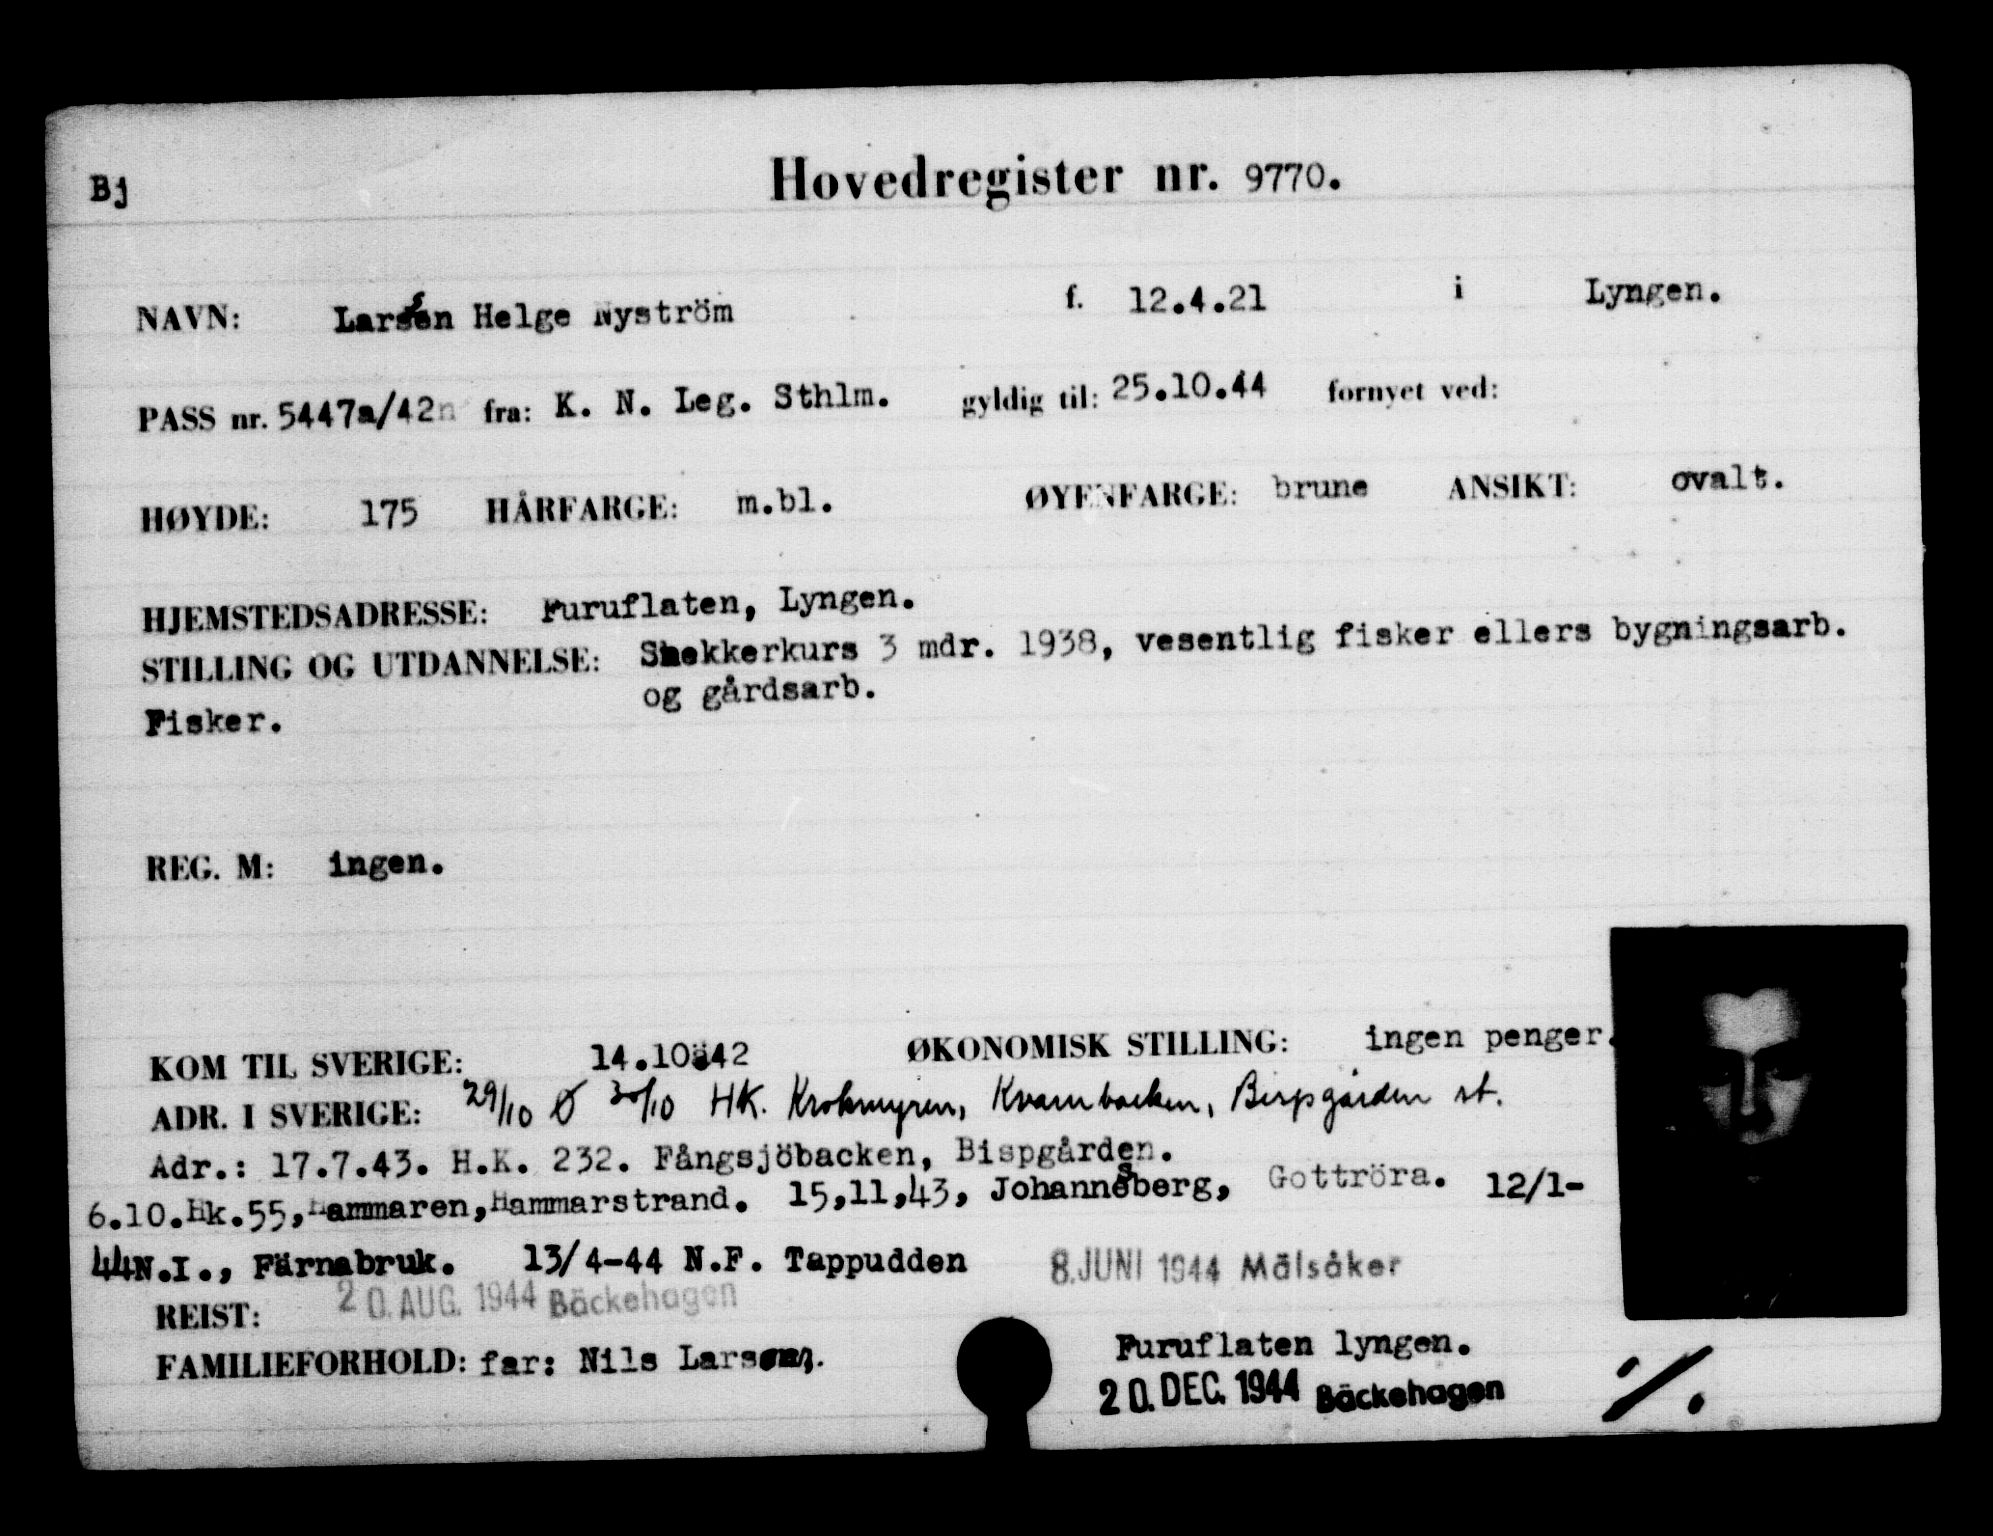 Bj
Hovedregister nr. 9770.
NAVN: Larsen Helge Nyström f. 12.4.21 i Lyngen.
PASS nr. 5447a/42n fra: K. N. Leg. Sthlm. gyldig til: 25.10.44 fornyet ved:
HØYDE: 175 HÅRFARGE: m.bl. ØYENFARGE: brune ANSIKT: ovalt.
HJEMSTEDSADRESSE: Furuflaten, Lyngen.
STILLING OG UTDANNELSE: Snekkerkurs 3 mdr. 1938, vesentlig fisker ellers bygningsarb.
og gårdsarb.
Fisker.
REG. M: ingen.
KOM TIL SVERIGE: 14.10.42 ØKONOMISK STILLING: ingen penger.
ADR. I SVERIGE: 29/10 Ø 30/10 HK. Krokmyren, Kvarnbacken, Bispgården st.
Adr.: 17.7.43. H.K. 232. Fångsjöbacken, Bispgården.
6.10.Hk.55, Hammaren, Hammarstrand. 15,11,43, Johannesberg, Gottröra. 12/1-
44 N.I., Färnabruk. 13/4-44 N.F. Tappudden 8. JUNI 1944 Mälsåker
REIST: 20. AUG. 1944 Bäckehagen
FAMILIEFORHOLD: far: Nils Larsen. Furuflaten lyngen.
20. DEC. 1944 Bäckehagen